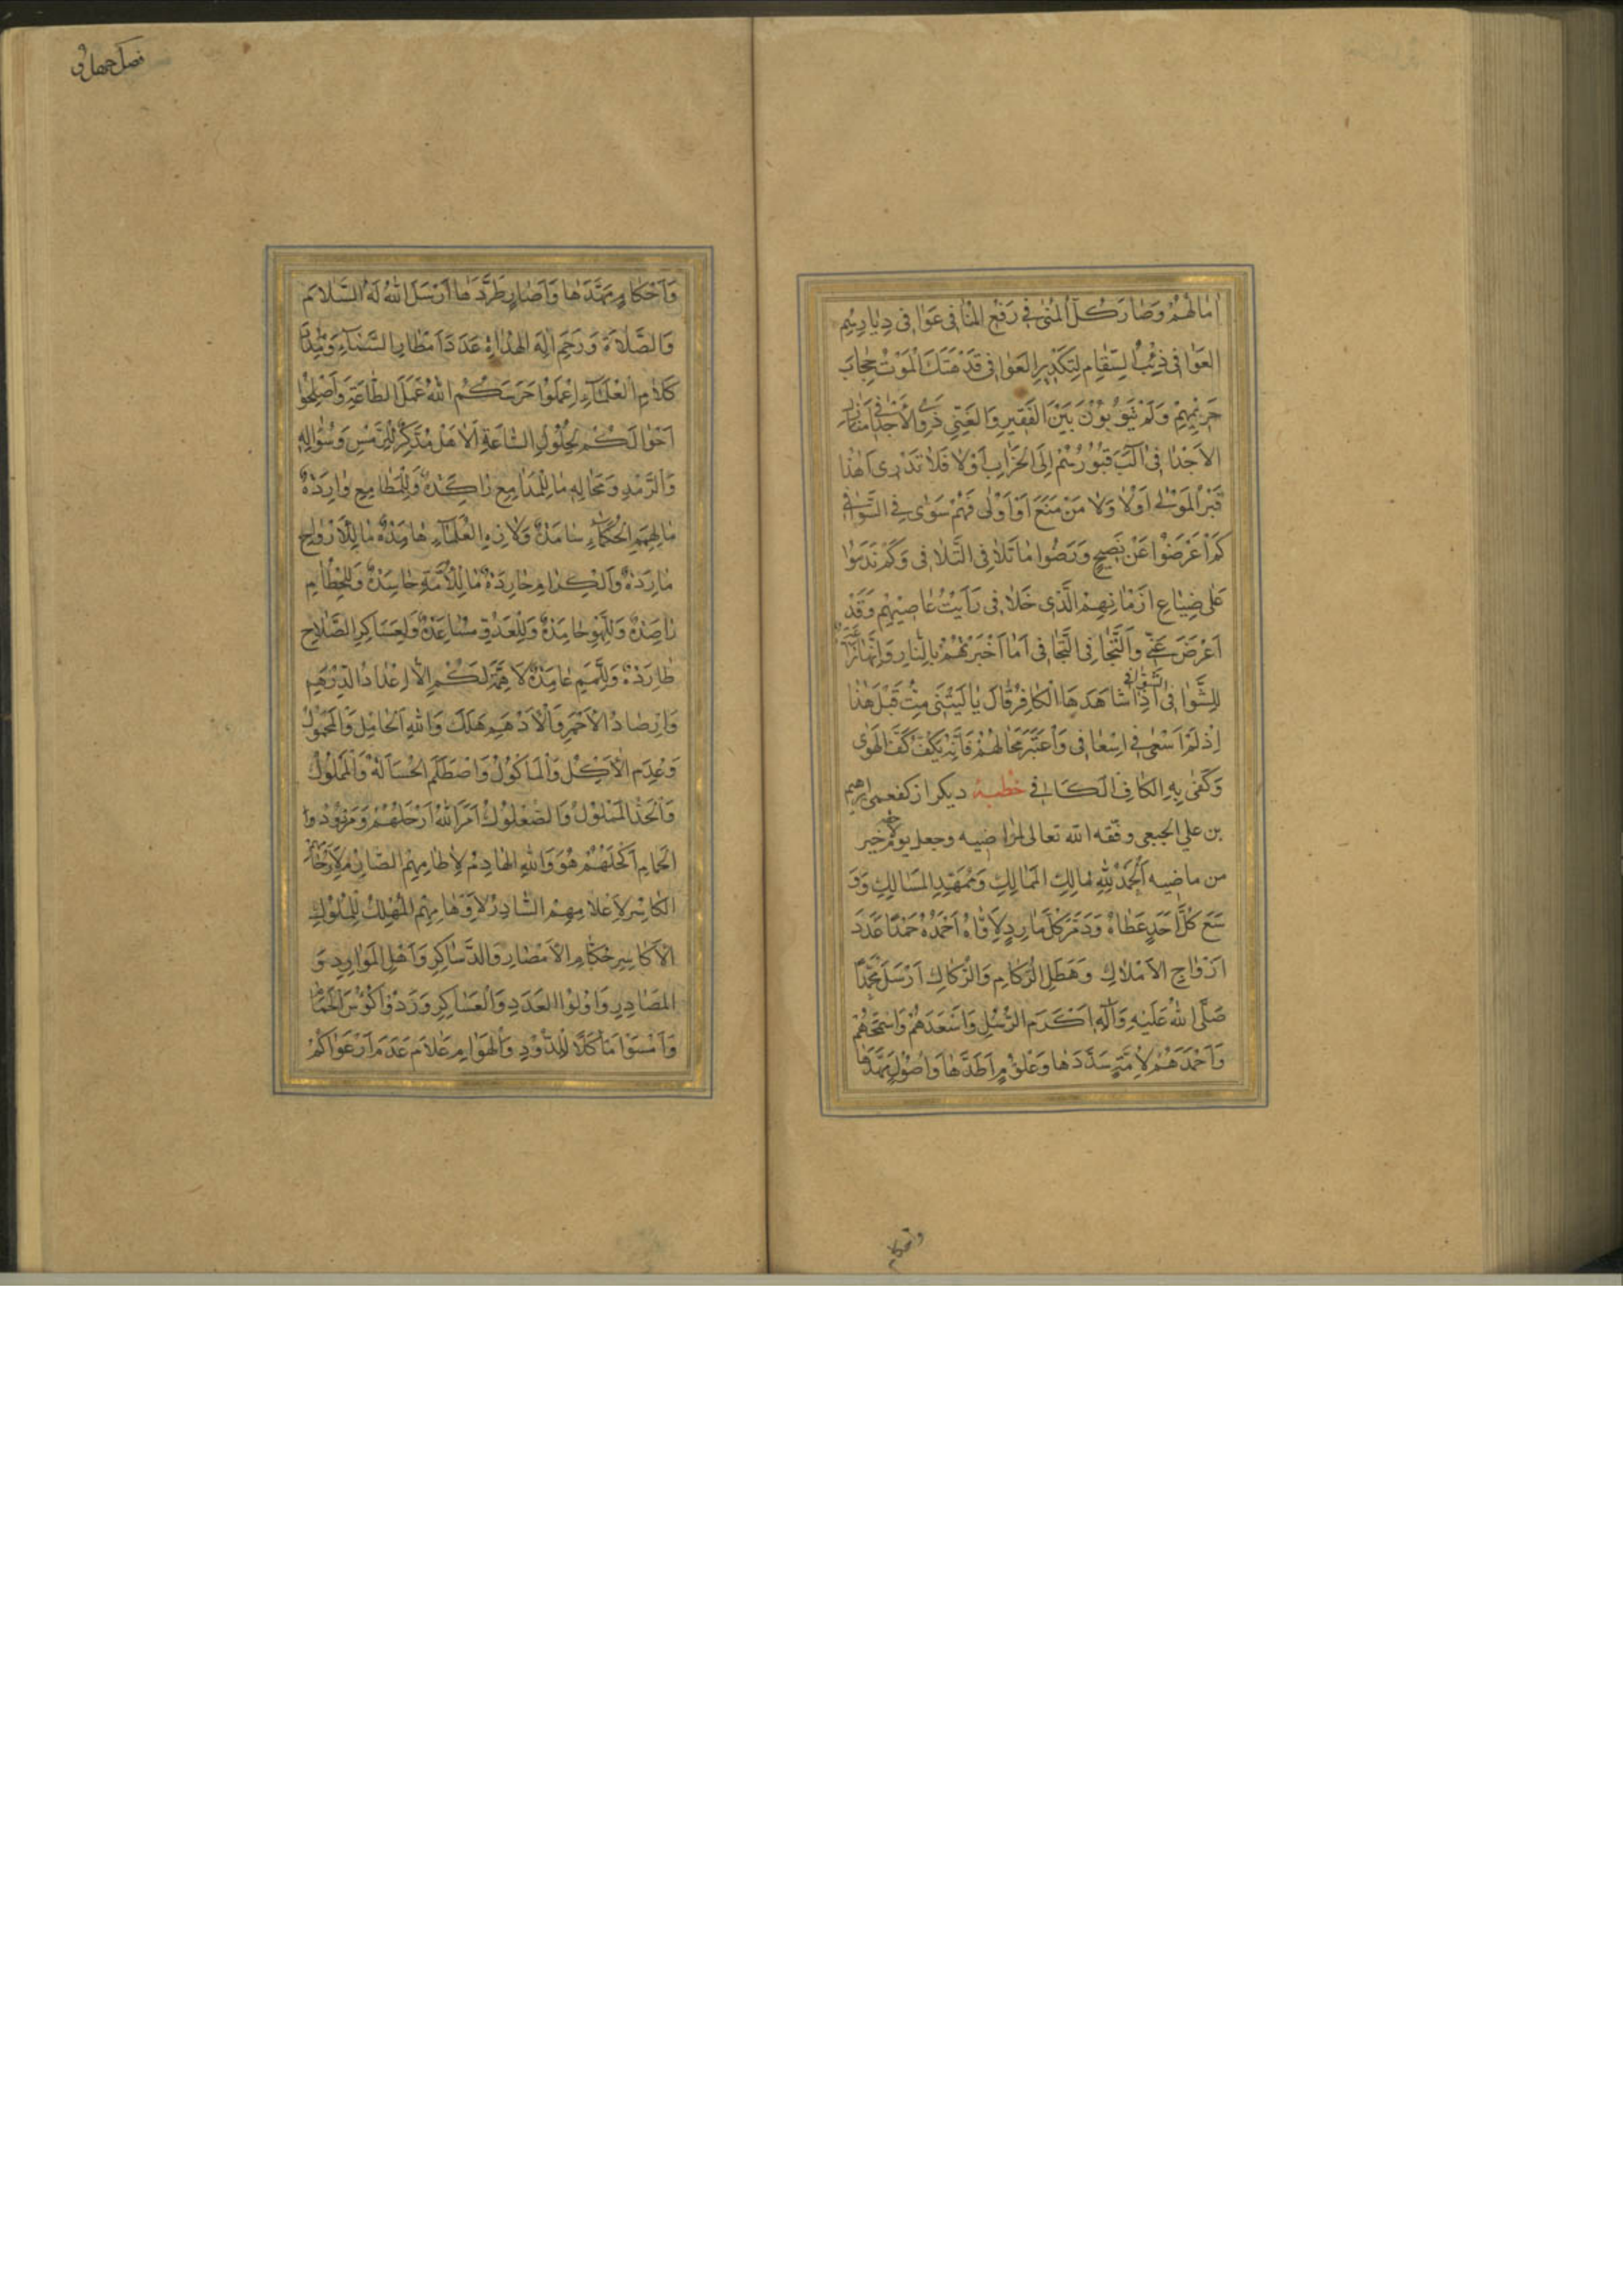 اَمَالَهُمْ وَصَارَ كُلُّ الْمُنىٰ فِي رَفْعِ الْمَنَافِي عَوَافِي دِيَارِهِمِ
العَوَافِي ذِئْبُ السِّقَامِ لِتَكْدِيرِ العَوَافِي قَدْ هَتَكَ الْمَوْتُ حِجَابَ
حَرِيْمِهِمْ وَلَمْ بَيْنَ الفَقِيرِ وَالغَنِيِّ
الاَجْدَافِي قُبُورُهُمْ اِلَى الخَرَابِ اَوْلاٰ فَلاٰ تَدْرِى اَهٰذَا
قَبْرُ المَوْلىٰ اَوْلاٰ وَلاٰ مَنْ مَنَعَ اَوْ اَوْلىٰ فَهُمْ سَوٰى فِي التَّوَافِي
كَمْ اَعْرَضُوْا عَنْ نَصِيحٍ وَرَضُوا مَا تَلاٰفِي التَّلاٰفِي وَكَمْ نَدِمُوْا
عَلىٰ ضِيَاعِ اَزْمَانِهِمْ الَّذى خَلاٰ فِى رَاَيْتُ عَاصِيْهِمْ وَقَدْ
اَعْرَضَ عَنِّي وَالتَّجَافِى التَّجَافِى اَمَا اَخْبَرْتُهُمْ بِالنَّارِ وَاِنَّهَا نَزَّاعَةً
لِلشَّوٰافِى اَذِاشَاهَدَهَا الْكَافِرُ قَالَ يَا لَيْتَنى مِتُّ قَبْلَ هٰذَا
اِذْ لَمْ اَسْعىٰ فِي اِسْعَافِى وَاعْتَبَرَ بِحَالِهُمْ فَاِنَّهُ يَكُفُّ كَفَّ الْهَوٰى
وَكَفىٰ بِهِ الكَافِى الكَافِي خطبهٔ ديكر از كفعمى ابرهيم
بن علي الجبعي وفقه الله تعالى لمراضيه وجعل يومه خير
من ماضيه اَلْحَمْدُ لِلّٰهِ مَالِكِ المَمَالِكِ وَمُمَهِّدِ المَسَالِكِ وَوَ
سَعَ كُلَّ اَحَدٍ عَطَاهُ وَدَمَّرَ كُلَّ مَارِدٍ لاٰوَاهُ اَحْمَدُهُ حَمْدًا عَدَدَ
اَرْوَاحِ الاَمْلاٰكِ وَهَطْلِ الرُّكَامِ وَالرُّكَاكِ اَرْسَلَ مُحَمَّدًا
صَلَّى اللهُ عَلَيْهِ وَآلِهِ اَكْرَمَ الرُّسُلِ وَاَسْعَدَهُمْ وَاَسْمَحَهُمْ
وَاَحْمَدَهُمْ لاُمَّةٍ سَدَّدَهَا وَعُلُوْمٍ اَطَّدَهَا وَاُصُوْلٍ مَهَّدَهَا
واحكام
فصل چهل و
وَاَحْكَامٍ مَهَّدَهَا وَآصَارٍ طَرَّدَهَا اَرْسَلَ اللهُ لَهُ السَّلاٰمَ
وَالصَّلاٰةَ وَرَحِمَ اٰلَهُ الهُدَاةَ عَدَدَ اَمْطَارِ السَّمَاءِ وَمِدَادَ
كَلاٰمِ العُلَمَآءِ اِعْمَلُوا حَرَسَكُمُ اللهُ عَمَلَ الطَّاعَةِ وَاَصْلِحُوْا
اَحْوَالَكُمْ لِحُلُولِ السَّاعَةِ اَلاٰ هَلْ مُتَذَكِّرٌ لِلرَّمْسِ وَسُؤَالِهِ
وَالرَّمْدِ وَمُحَالِهِ مَا لِلْمَدَامِعِ رَاكِدَةٌ وَلِلْمَطَامِعِ وَارِدَةٌ
مَا لِهِمَمِ الحُكَمَاءِ سَامِدَةٌ وَلاٰرَاءِ العُلَمَآءِ هَامِدَةٌ مَا لِلْاَرْوَاحِ
مَارِدَةٌ وَالْكِرَامِ حَارِدَةٌ مَا لِلْاُمَّةِ حَاسِدَةٌ وَلِلْحُطَامِ
رَاصِدَةٌ وَلِلَّهْوِ حَامِدَةٌ وَلِلْعَدُوِّ مُسَاعِدَةٌ وَلِعَسَاكِرِ الصَّلاٰحِ
طَارِدَةٌ وَلِلَّمَمِ عَامِدَةٌ لاٰ هِمَّةَ لَكُمْ اِلاّٰ اِعْدَادُ الدِّرْهَمِ
وَاِرْصَادُ الاَحْمَرِ وَالْاَدْهَمِ هَلَكَ وَاللهِ اَلحَامِلُ وَالْمَحْمُوْلُ
وَعُدِمَ الاٰكِلُ وَالْمَاْكُوْلُ وَاصْطُلِمَ وَالْمَمْلُوْكُ
اَمَرَ اللهُ اَرْحَلَهُمْ وَمَرْدُوْدُوا
الْحِمَامِ اَكْحَلَهُمْ هُوَ وَاللهِ الهَادِمُ لاٰطَامِهِمْ الصَّارِمُ لاِرْحَامِهِمْ
الكَاسِرُ لاِعْلاٰمِهِمْ السَّادِرُ لاِوْهَامِهِمْ المُهْلِكُ لِلْمُلُوْكِ
الاَكَاسِرِ حُكَّامِ الاَمْصَارِ وَالدَّسَاكِرِ وَاَهْلِ المَوَارِدِ وَ
المَصَادِرِ وَاُوْلُوْا العَدَدِ وَالْعَسَاكِرِ وَرَدُوْا كُوُسَ الحِمَامِ
وَاَمْسَوْا مَاْكَلاً لِلدُّوْدِ وَالْهَوَامِ عَلاٰمَ عَدَمَ اَرْعَوَاكُمْ